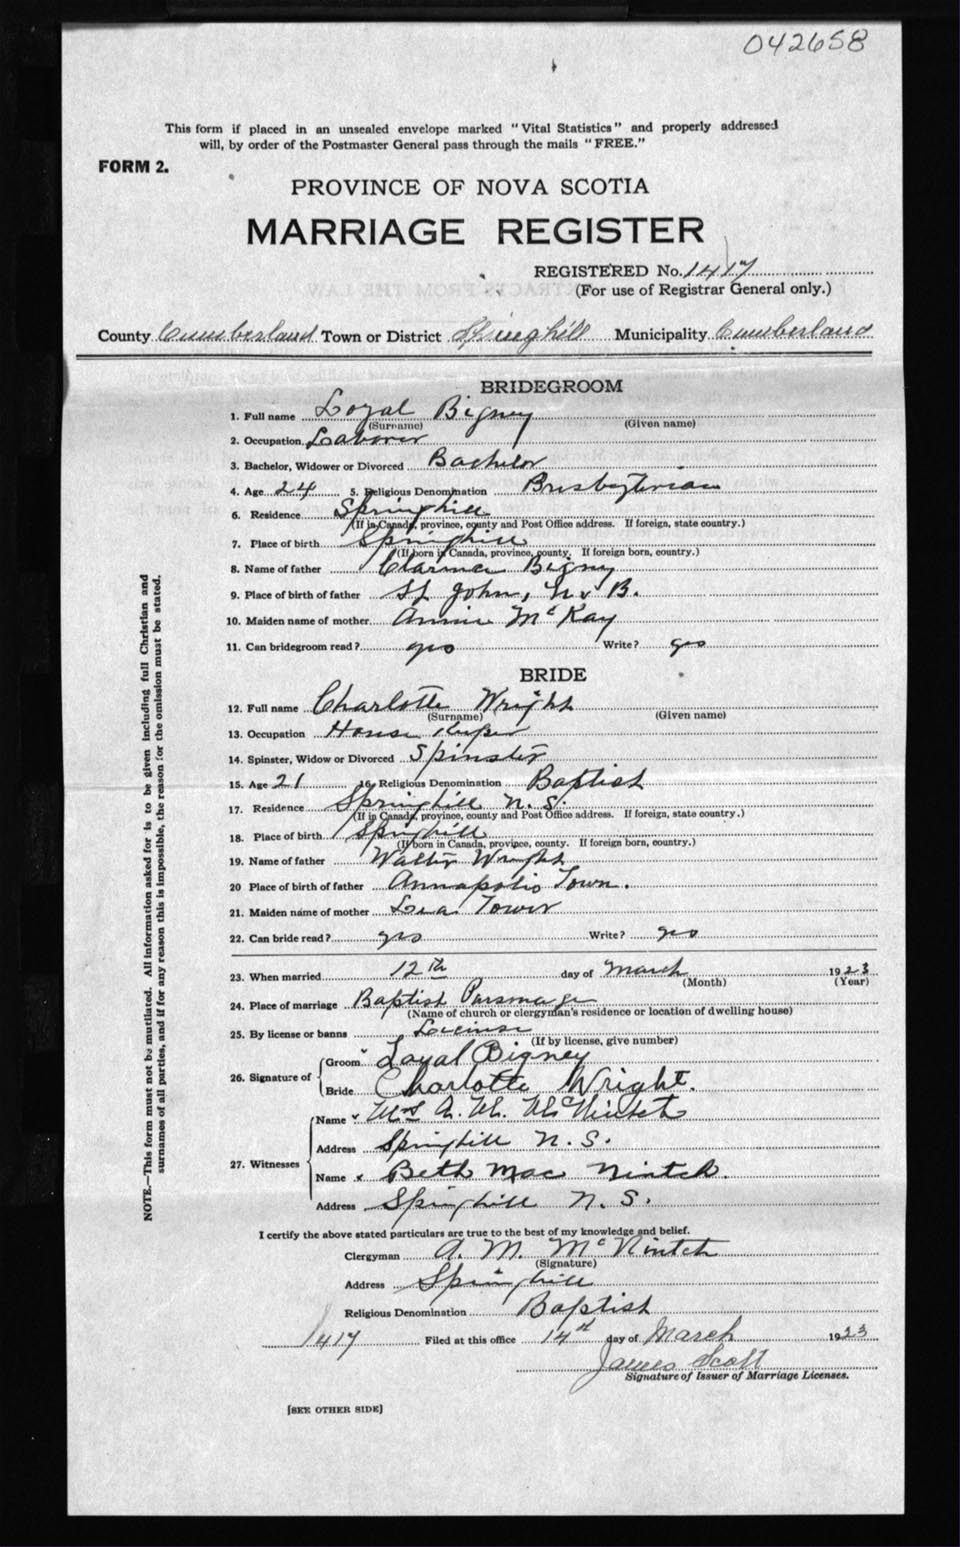 042658
This form if placed in an unsealed envelope marked "Vital Statistics" and properly addressed
will, by order of the Postmaster General pass through the mails "FREE."
FORM 2.
PROVINCE OF NOVA SCOTIA
MARRIAGE REGISTER
REGISTERED No. 1417
(For use of Registrar General only.)
County Cumberland Town or District Springhill Municipality Cumberland
BRIDEGROOM
1. Full name Loyal Bigney
(Surname) (Given name)
2. Occupation Laborer
3. Bachelor, Widower or Divorced Bachelor
4. Age 24 5. Religious Denomination Presbyterian
6. Residence Springhill
(If in Canada, province, county and Post Office address. If foreign, state country.)
7. Place of birth Springhill
(If born in Canada, province, county. If foreign born, country.)
8. Name of father Bigney
9. Place of birth of father St John, N. B.
10. Maiden name of mother Annie McKay
11. Can bridegroom read? yes Write? yes
BRIDE
12. Full name Charlotte Wright
(Surname) (Given name)
13. Occupation House Keeper
14. Spinster, Widow or Divorced Spinster
15. Age 21 16. Religious Denomination Baptist
17. Residence Springhill N. S.
(If in Canada, province, county and Post Office address. If foreign, state country.)
18. Place of birth Springhill
(If born in Canada, province, county. If foreign born, country.)
19. Name of father Walter Wright
20 Place of birth of father Annapolis Town.
21. Maiden name of mother Tower
22. Can bride read? yes Write? yes
23. When married 12th day of March 1923
(Month) (Year)
24. Place of marriage Baptist Parsonage
(Name of church or clergyman's residence or location of dwelling house)
25. By license or banns License
(If by license, give number)
26. Signature of Groom Loyal Bigney
Bride Charlotte Wright.
27. Witnesses Name Mrs A. M. McNintch
Address Springhill N. S.
Name x Beth MacNintch.
Address Springhill N. S.
I certify the above stated particulars are true to the best of my knowledge and belief.
Clergyman A. M. McNintch
(Signature)
Address Springhill
Religious Denomination Baptist
1417 Filed at this office 14th day of March 1923
James Scott
Signature of Issuer of Marriage Licenses.
[SEE OTHER SIDE]
NOTE.—This form must not be mutilated. All information asked for is to be given including full Christian and
surnames of all parties, and if for any reason this is impossible, the reason for the omission must be stated.